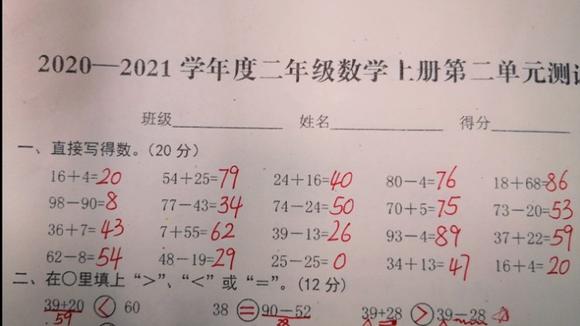 2020—2021 学年度二年级数学上册第二单元测
班级 姓名 得分
一、直接写得数。(20 分)
16+4=20 54+25=79 24+16=40 80-4=76 18+68=86
98-90=8 77-43=34 74-24=50 70+5=75 73-20=53
36+7=43 7+55=62 39-13=26 93-4=89 37+22=59
62-8=54 48-19=29 25-25=0 34+13=47 16+4=20
二、在○里填上“>”、“<”或“=”。(12 分)
39+20 < 60 38 = 90-52 39+28 > 39-28
59